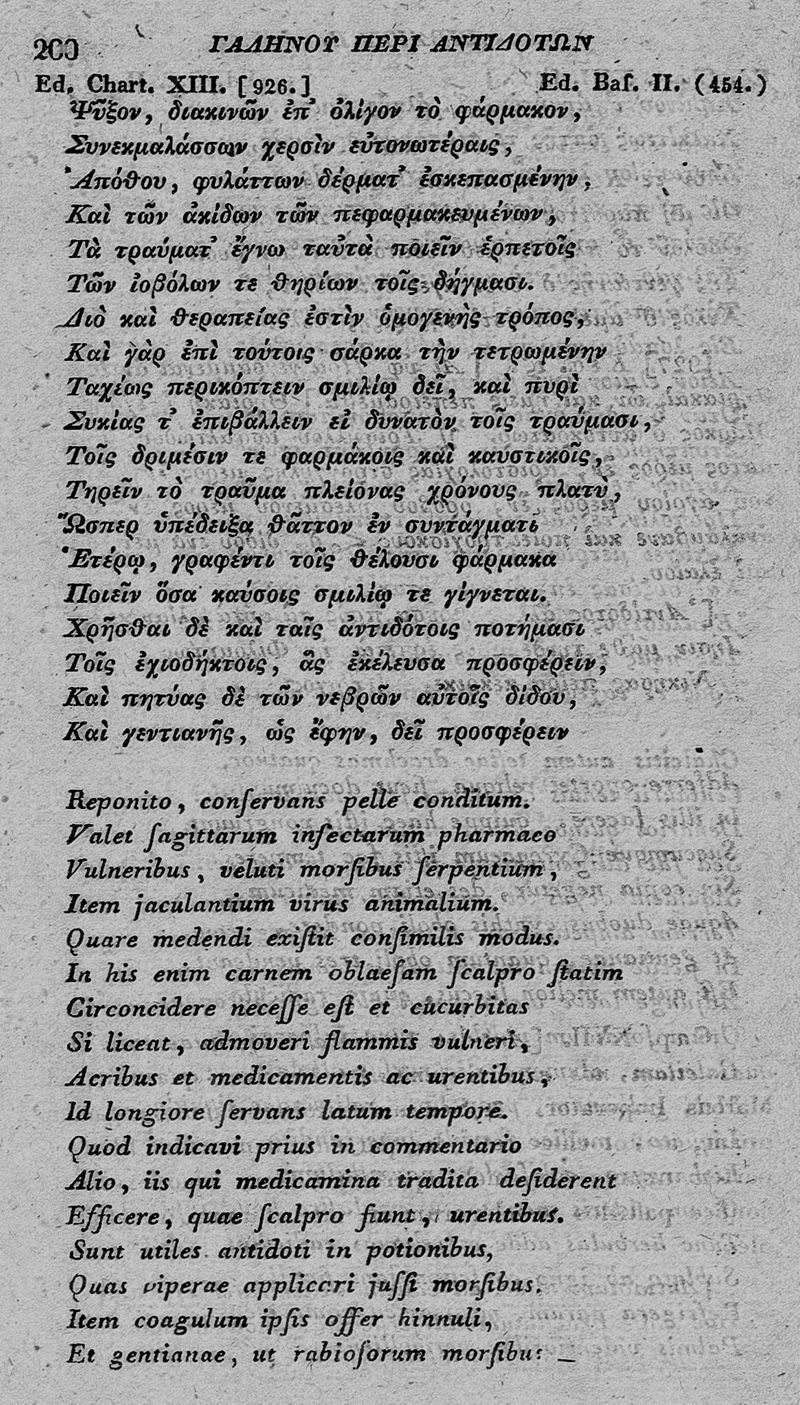 200 ΓΑΛΗΝΟΥ ΠΕΡΙ ΑΝΤΙΔΟΤΩΝ
Ed. Chart. XIII. [926.] Ed. Baſ. II. (454.)
Ψῦξον, διακινῶν ἐπ' ὀλίγον τὸ φάρμακον,
Συνεκμαλάσσων χερσὶν εὐτονωτέραις,
Ἀπόθου, φυλάττων δέρματ' ἐσκεπασμένην,
Καὶ τῶν ἀκίδων τῶν πεφαρμακευμένων,
Τὰ τραύματ' ἔγνω ταὐτὰ ποιεῖν ἑρπετοῖς
Τῶν ἰοβόλων τε θηρίων τοῖς δήγμασι.
Διὸ καὶ θεραπείας ἐστὶν ὁμογενὴς τρόπος,
Καὶ γὰρ ἐπὶ τούτοις σάρκα τὴν τετρωμένην
Ταχέως περικόπτειν σμιλίῳ δεῖ, καὶ πυρὶ
Συκίας τ' ἐπιβάλλειν εἰ δυνατὸν τοῖς τραύμασι,
Τοῖς δριμέσιν τε φαρμάκοις καὶ καυστικοῖς,
Τηρεῖν τὸ τραῦμα πλείονας χρόνους πλατὺ,
Ὥσπερ ὑπέδειξα θᾶττον ἐν συντάγματι
Ἑτέρῳ, γραφέντι τοῖς θέλουσι φάρμακα
Ποιεῖν ὅσα καύσοις σμιλίῳ τε γίγνεται.
Χρῆσθαι δὲ καὶ ταῖς ἀντιδότοις ποτήμασι
Τοῖς ἐχιοδήκτοις, ἃς ἐκέλευσα προσφέρειν,
Καὶ πητύας δὲ τῶν νεβρῶν αὐτοῖς δίδου,
Καὶ γεντιανῆς, ὡς ἔφην, δεῖ προσφέρειν
Reponito, conſervans pelle conditum.
Valet ſagittarum infectarum pharmaco
Vulneribus, veluti morſibus ſerpentium,
Item jaculantium virus animalium.
Quare medendi exiſtit conſimilis modus.
In his enim carnem oblaeſam ſcalpro ſtatim
Circoncidere neceſſe eſt et cucurbitas
Si liceat, admoveri flammis vulneri,
Acribus et medicamentis ac urentibus,
Id longiore ſervans latum tempore.
Quod indicavi prius in commentario
Alio, iis qui medicamina tradita deſiderent
Efficere, quae ſcalpro fiunt, urentibus.
Sunt utiles antidoti in potionibus,
Quas viperae applicari juſſi morſibus.
Item coagulum ipſis offer hinnuli,
Et gentianae, ut rabioſorum morſibus